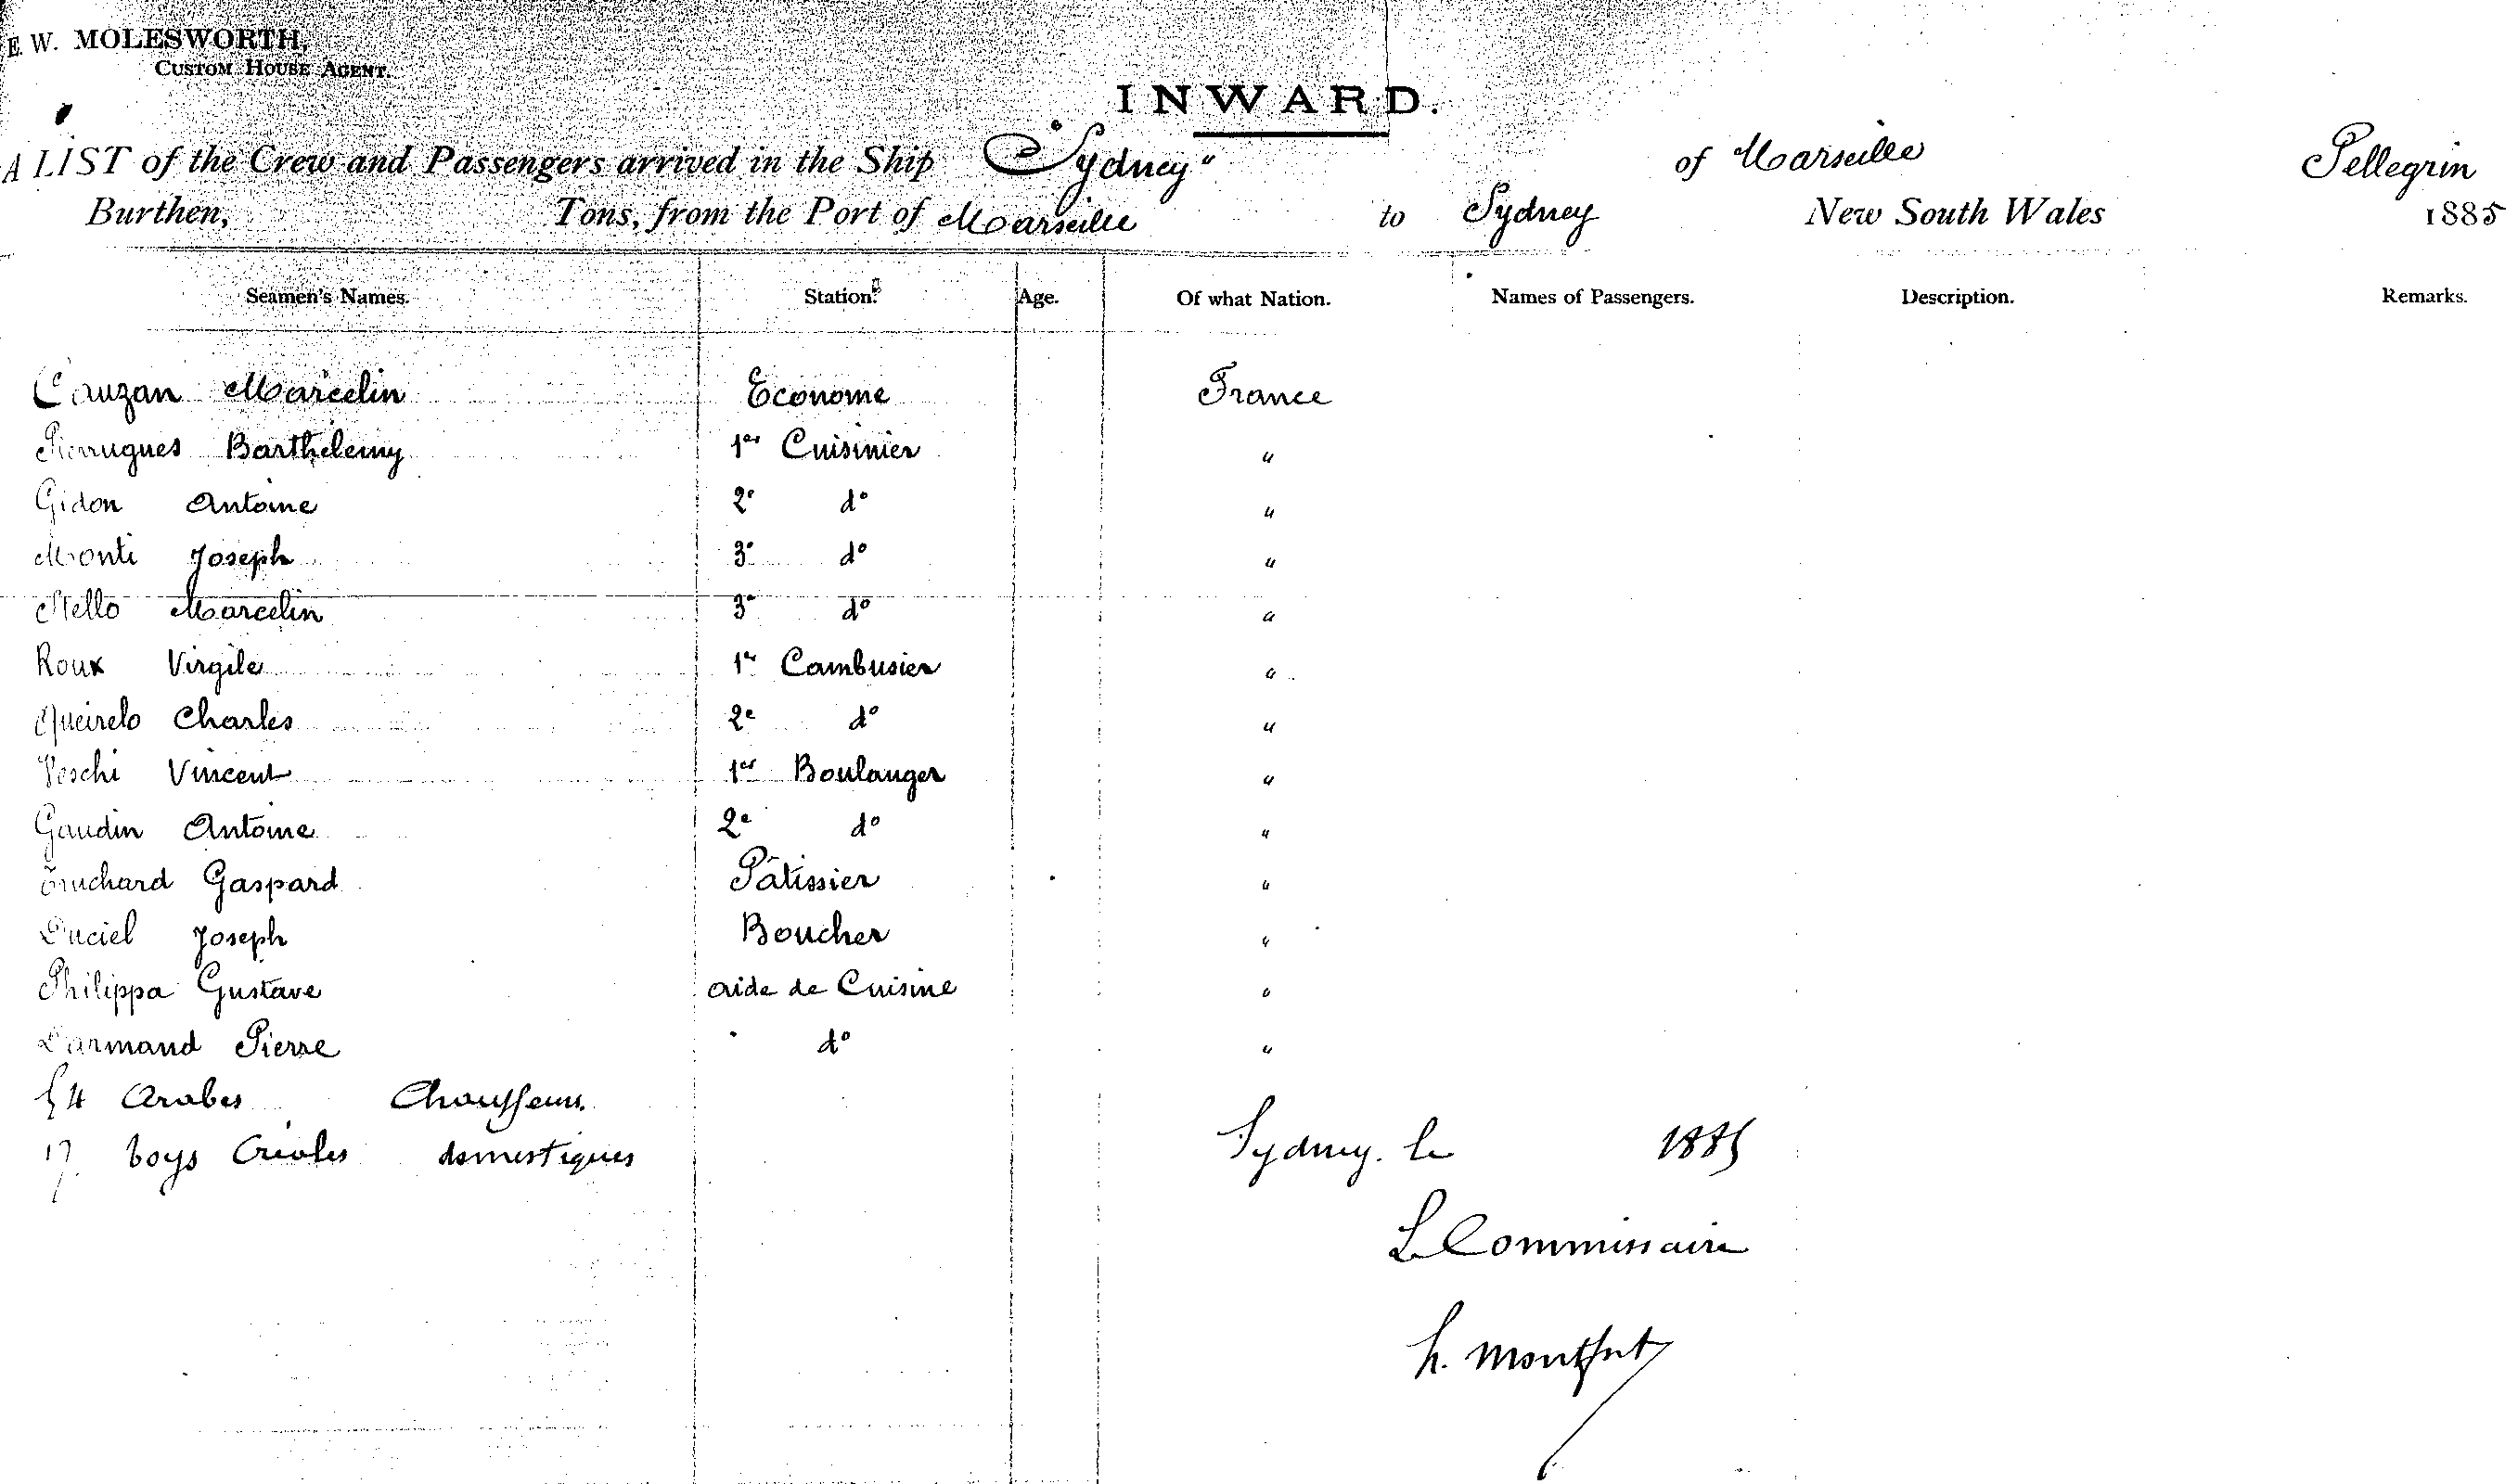 E. W. MOLESWORTH,
CUSTOM HOUSE AGENT.
INWARD.
A LIST of the Crew and Passengers arrived in the Ship "Sydney" of Marseille Pellegrin
Burthen, Tons, from the Port of Marseille to Sydney New South Wales 1885
Seamen's Names. Station. Age. Of what Nation. Names of Passengers. Description. Remarks.
Cauzan Marcelin Econome France
Pierrugues Barthélemy 1er Cuisinier "
Gidon Antoine 2e do "
Monti Joseph 3e do "
Mello Marcelin 3e do "
Roux Virgile 1er Cambusier "
Queirelo Charles 2e do "
Peschi Vincent 1er Boulanger "
Gaudin Antoine 2e do "
Gaspard Pâtissier "
Duciel Joseph Boucher "
Philippa Gustave aide de Cuisine "
Darmand Pierre do "
54 Arabes Chauffeurs.
17 boys Créoles domestiques
Sydney. le 1885
Le Commissaire
h. Montfort